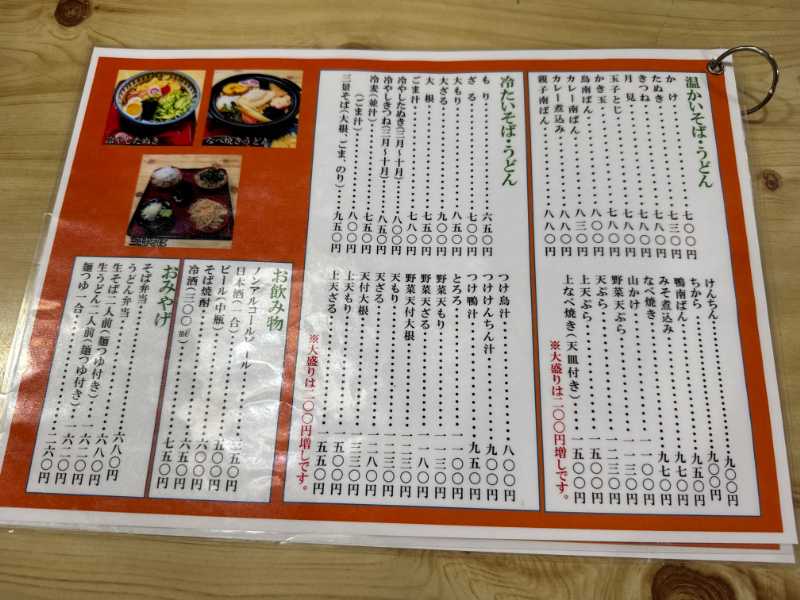 温かいそば・うどん
かけ・・・・・・七〇〇円
たぬき・・・・・七三〇円
きつね・・・・・七八〇円
月見・・・・・・七八〇円
玉子とじ・・・・七八〇円
かき玉・・・・・八〇〇円
鳥南ばん・・・・八三〇円
カレー南ばん・・八八〇円
カレー煮込み・・八八〇円
親子南ばん・・・八八〇円
けんちん・・・・・九〇〇円
ちから・・・・・・九〇〇円
鴨南ばん・・・・・九五〇円
みそ煮込み・・・・九七〇円
なべ焼き・・・・・九七〇円
山かけ・・・・・一一〇〇円
野菜天ぷら・・・一一三〇円
天ぷら・・・・・一一五〇円
上天ぷら・・・・一五〇〇円
上なべ焼き(天皿付き)・・一五五〇円
※大盛りは二〇〇円増しです。
冷たいそば・うどん
もり・・・・・・六五〇円
ざる・・・・・・七〇〇円
大もり・・・・・八五〇円
大ざる・・・・・九〇〇円
大根・・・・・・七五〇円
ごま汁・・・・・七八〇円
冷やしたぬき(三月～十月)八〇〇円
冷やしきつね(三月～十月)八五〇円
冷麦(並汁)・・・七五〇円
(ごま汁)・・・八〇〇円
三景そば(大根、ごま、のり)・・九五〇円
つけ鳥汁・・・・・八〇〇円
つけけんちん汁・・九〇〇円
つけ鴨汁・・・・・九五〇円
とろろ・・・・・一一〇〇円
野菜天もり・・・一一三〇円
野菜天ざる・・・一一八〇円
野菜天付大根・・一二三〇円
天もり・・・・・一二三〇円
天ざる・・・・・一二八〇円
天付大根・・・・一三三〇円
上天もり・・・・一五〇〇円
上天ざる・・・・一五五〇円
※大盛りは二〇〇円増しです。
冷やしたぬき
なべ焼きうどん
お飲み物
ノンアルコールビール・・三五〇円
日本酒(一合)・・・五〇〇円
ビール(中瓶)・・・六〇〇円
そば焼酎・・・・・六五〇円
冷酒(三〇〇㎖)・・・七五〇円
おみやげ
そば弁当・・・・・六八〇円
うどん弁当・・・・六二〇円
生そば二人前(麺つゆ付き)・・六八〇円
生うどん二人前(麺つゆ付き)・六二〇円
麺つゆ一合・・・・一六〇円